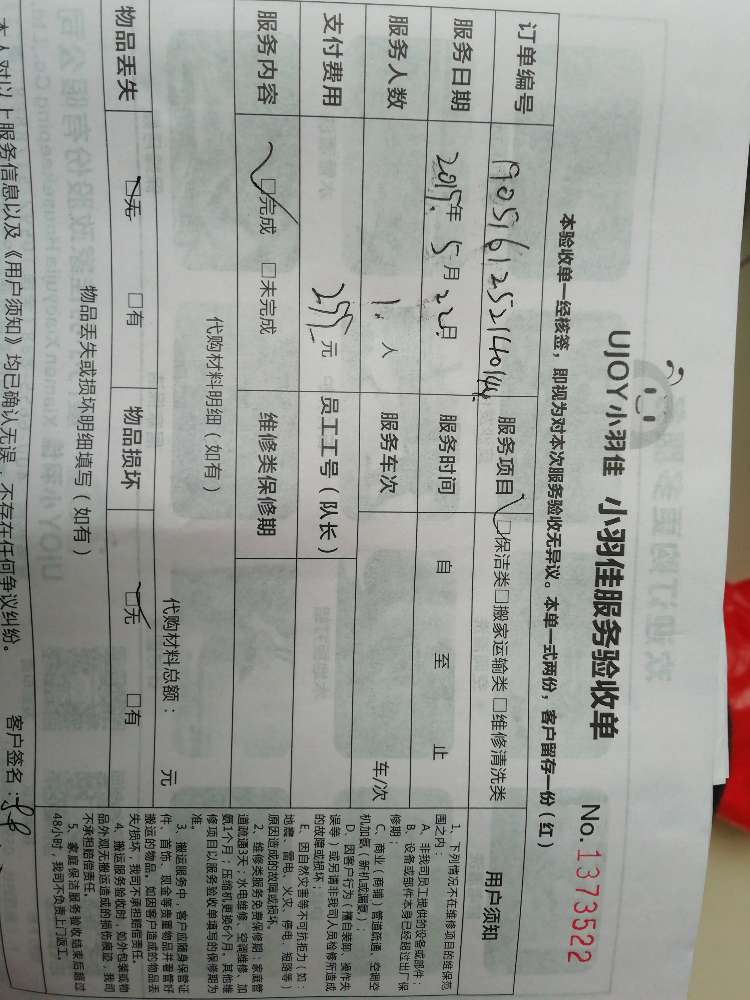 UJOY小羽佳 小羽佳服务验收单
No.1373522
本验收单一经核签，即视为对本次服务验收无异议。本单一式两份，客户留存一份（红）
订单编号 服务项目 □保洁类□搬家运输类□维修清洗类
服务日期 2019年 5月 22日 服务时间 自 至 止
服务人数 1. 人 服务车次 车/次
支付费用 元 员工工号（队长）
服务内容 □完成 □未完成 维修类保修期
代购材料明细（如有） 代购材料总额： 元
物品丢失 □无 □有 物品损坏 □无 □有
物品丢失或损坏明细填写（如有）
本人对以上服务信息以及《用户须知》均已确认无误，不存在任何争议纠纷。
客户签名：
用户须知
1、下列情况不在维修项目的维保范
围之内：
A、非我司员工提供的设备或部件；
B、设备或部件本身已经超过出厂保
修期；
C、商业（商铺）管道疏通、空调空
机加氨（新机或漏氨）；
D、因客户行为（擅自装卸、操作失
误等）或另请非我司人员检修所造成
的故障或损坏；
E、因自然灾害等不可抗拒力（如：
地震、雷电、火灾、停电、短路等）
原因造成的故障或损坏。
2、维修类服务免费保修期：家庭管
道疏通3天；水电维修、空调维修、加
氨1个月；压缩机更换6个月，其他维
修项目以服务验收单填写的保修期为
准。
3、搬运服务中，客户应随身保管证
件、首饰、现金等贵重物品并看管好
搬运的物品，如因客户造成的物品丢
失/损坏，我司不承担赔偿责任。
4、搬运服务验收时，如外包装或物
品外观无搬运造成的损伤痕迹，我司
不承担赔偿责任。
5、家庭保洁服务验收结束后超过
48小时，我司不负责上门返工。